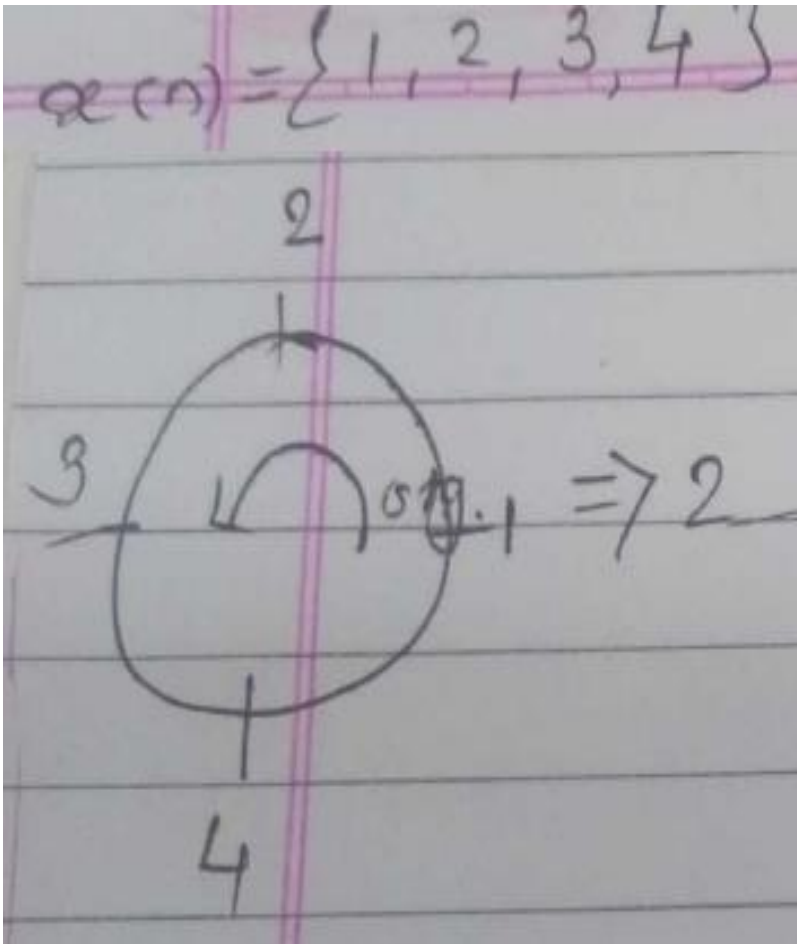 x(n) = {1, 2, 3, 4}
2
3
org. 1 ⇒ 2
4